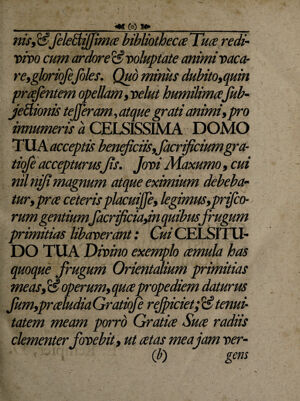 (o)
nis, & selectissimæ bibliothecæ Tuæ redi-
vivo cum ardore & voluptate animi vaca-
re, gloriose soles. Quò minùs dubito, quin
præsentem opellam, velut humilimæ sub-
jectionis tesseram, atque grati animi, pro
innumeris à CELSISSIMA DOMO
TUA acceptis beneficiis, sacrificium gra-
tiose accepturus sis. Jovi Maxumo, cui
nil nisi magnum atque eximium debeba-
tur, præ ceteris placuisse, legimus, prisco-
rum gentium sacrificia, in quibus frugum
primitias libaverant: Cui CELSITU-
DO TUA Divino exemplo æmula has
quoque frugum Orientalium primitias
meas, & operum, quæ propediem daturus
sum, præludia Gratiose respiciet; & tenui-
tatem meam porrò Gratiæ Suæ radiis
clementer fovebit, ut ætas mea jam ver-
(b) gens